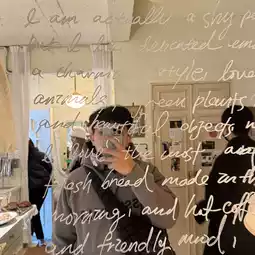 I am actually a shy pe
but I am dedicated
a charming style, love
animals, green plants
and beautiful objects
I love the most
fresh bread made in the
morning, and hot coff
and friendly mood,